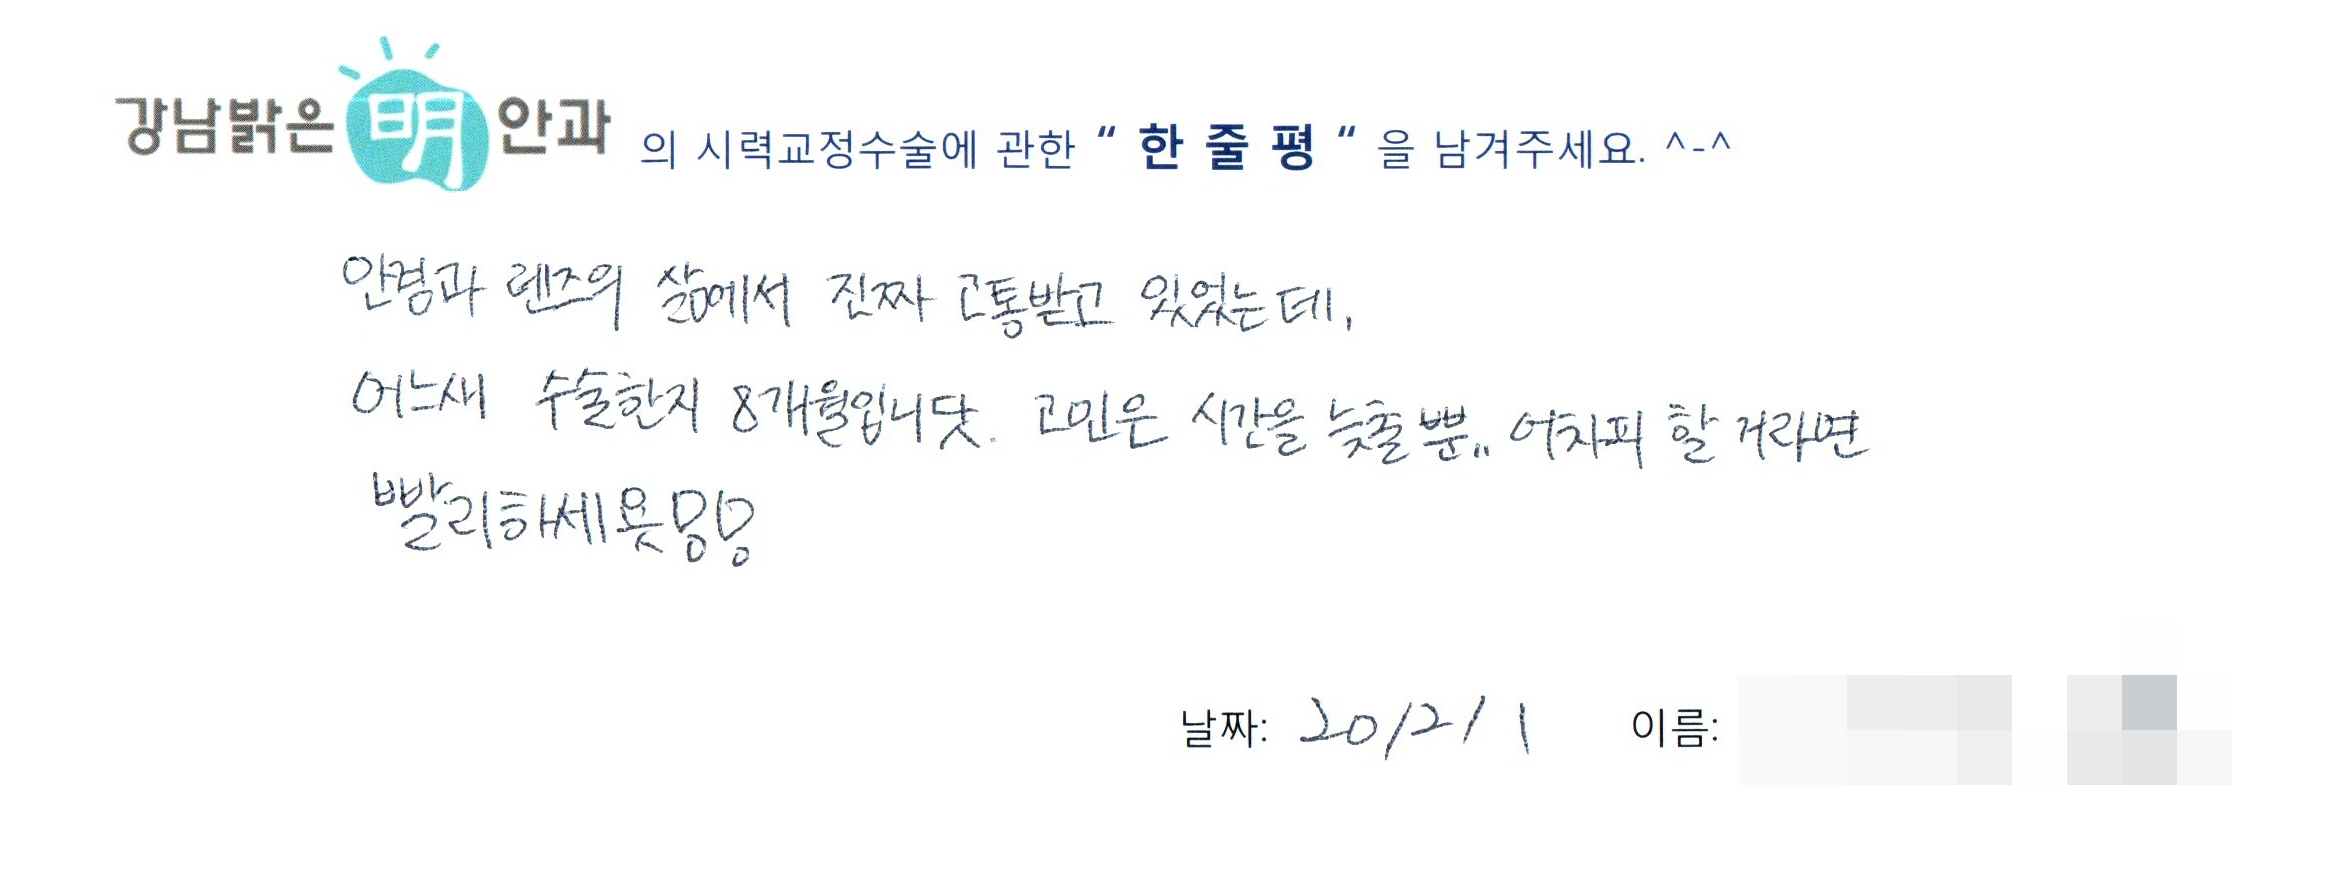 강남밝은 明 안과 의 시력교정수술에 관한 “ 한 줄 평 “ 을 남겨주세요. ^-^
안경과 렌즈의 삶에서 진짜 고통받고 있었는데,
어느새 수술한지 8개월입니닷. 고민은 시간을 늦출 뿐.. 어차피 할 거라면
빨리하세욧
날짜: 20/2/1 이름: